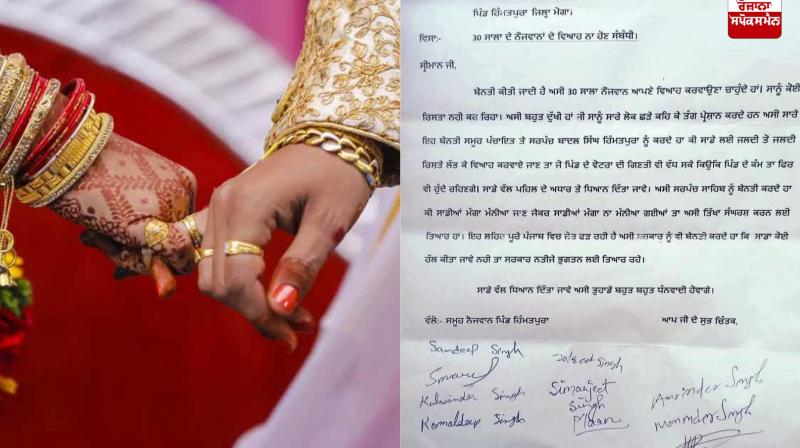 ਰੋਜ਼ਾਨਾ
ਸਪੋਕਸਮੈਨ
ਪਿੰਡ ਹਿੰਮਤਪੁਰਾ ਜਿਲ੍ਹਾ ਮੋਗਾ।
ਵਿਸ਼ਾ:- 30 ਸਾਲਾ ਦੇ ਨੌਜਵਾਨਾਂ ਦੇ ਵਿਆਹ ਨਾ ਹੋਣ ਸੰਬੰਧੀ।
ਸ੍ਰੀਮਾਨ ਜੀ,
ਬੇਨਤੀ ਕੀਤੀ ਜਾਂਦੀ ਹੈ ਅਸੀ 30 ਸਾਲਾ ਨੌਜਵਾਨ ਆਪਣੇ ਵਿਆਹ ਕਰਵਾਉਣਾ ਚਾਹੁੰਦੇ ਹਾਂ। ਸਾਨੂੰ ਕੋਈ
ਰਿਸਤਾ ਨਹੀ ਕਰ ਰਿਹਾ। ਅਸੀ ਬਹੁਤ ਦੁੱਖੀ ਹਾਂ ਜੀ ਸਾਨੂੰ ਸਾਰੇ ਲੋਕ ਛੜੇ ਕਹਿ ਕੇ ਤੰਗ ਪ੍ਰੇਸ਼ਾਨ ਕਰਦੇ ਹਨ ਅਸੀ ਸਾਰੇ
ਇਹ ਬੇਨਤੀ ਸਮੂਹ ਪੰਚਾਇਤ ਤੇ ਸਰਪੰਚ ਬਾਦਲ ਸਿੰਘ ਹਿੰਮਤਪੁਰਾ ਨੂੰ ਕਰਦੇ ਹਾ ਕੀ ਸਾਡੇ ਲਈ ਜਲਦੀ ਤੋਂ ਜਲਦੀ
ਰਿਸ਼ਤੇ ਲੱਭ ਕੇ ਵਿਆਹ ਕਰਵਾਏ ਜਾਣ ਤਾ ਜੋ ਪਿੰਡ ਦੇ ਵੋਟਰਾ ਦੀ ਗਿਣਤੀ ਵੀ ਵੱਧ ਸਕੇ ਕਿਉਕਿ ਪਿੰਡ ਦੇ ਕੰਮ ਤਾ ਫਿਰ
ਵੀ ਹੁੰਦੇ ਰਹਿਣਗੇ। ਸਾਡੇ ਵੱਲ ਪਹਿਲ ਦੇ ਅਧਾਰ ਤੇ ਧਿਆਨ ਦਿੱਤਾ ਜਾਵੇ। ਅਸੀ ਸਰਪੰਚ ਸਾਹਿਬ ਨੂੰ ਬੇਨਤੀ ਕਰਦੇ ਹਾ
ਕੀ ਸਾਡੀਆਂ ਮੰਗਾ ਮੰਨੀਆ ਜਾਣ ਜੇਕਰ ਸਾਡੀਆਂ ਮੰਗਾ ਨਾ ਮੰਨੀਆ ਗਈਆਂ ਤਾ ਅਸੀ ਤਿੱਖਾ ਸੰਘਰਸ਼ ਕਰਨ ਲਈ
ਤਿਆਰ ਹਾਂ। ਇਹ ਲਹਿਰ ਪੂਰੇ ਪੰਜਾਬ ਵਿਚ ਜੋਰ ਫੜ ਰਹੀ ਹੈ ਅਸੀ ਸਰਕਾਰ ਨੂੰ ਵੀ ਬੇਨਤੀ ਕਰਦੇ ਹਾ ਕਿ ਸਾਡਾ ਕੋਈ
ਹੱਲ ਕੀਤਾ ਜਾਵੇ ਨਹੀ ਤਾ ਸਰਕਾਰ ਨਤੀਜੇ ਭੁਗਤਨ ਲਈ ਤਿਆਰ ਰਹੇ।
ਸਾਡੇ ਵੱਲ ਧਿਆਨ ਦਿੱਤਾ ਜਾਵੇ ਅਸੀ ਤੁਹਾਡੇ ਬਹੁਤ ਬਹੁਤ ਧੰਨਵਾਦੀ ਹੋਵਾਗੇ।
ਵੱਲੋ:- ਸਮੂਹ ਨੌਜਵਾਨ ਪਿੰਡ ਹਿੰਮਤਪੁਰਾ ਆਪ ਜੀ ਦੇ ਸੁਭ ਚਿੰਤਕ,
Samdeep Singh Singh
Kulwinder Singh Simarjeet Singh Maan Amrinder Singh
Komaldeep Singh Maninder Singh